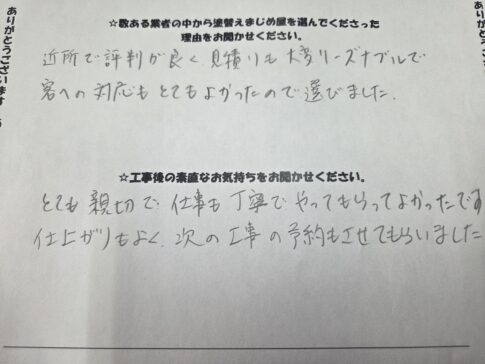 ☆数ある業者の中から塗替えまじめ屋を選んでくださった
理由をお聞かせください。
近所で評判が良く、見積りも大変リーズナブルで
客への対応もとてもよかったので選びました。
☆工事後の素直なお気持ちをお聞かせください。
とても親切で仕事も丁寧でやってもらってよかったです
仕上がりもよく、次の工事の予約もさせてもらいました
ありがとうございます